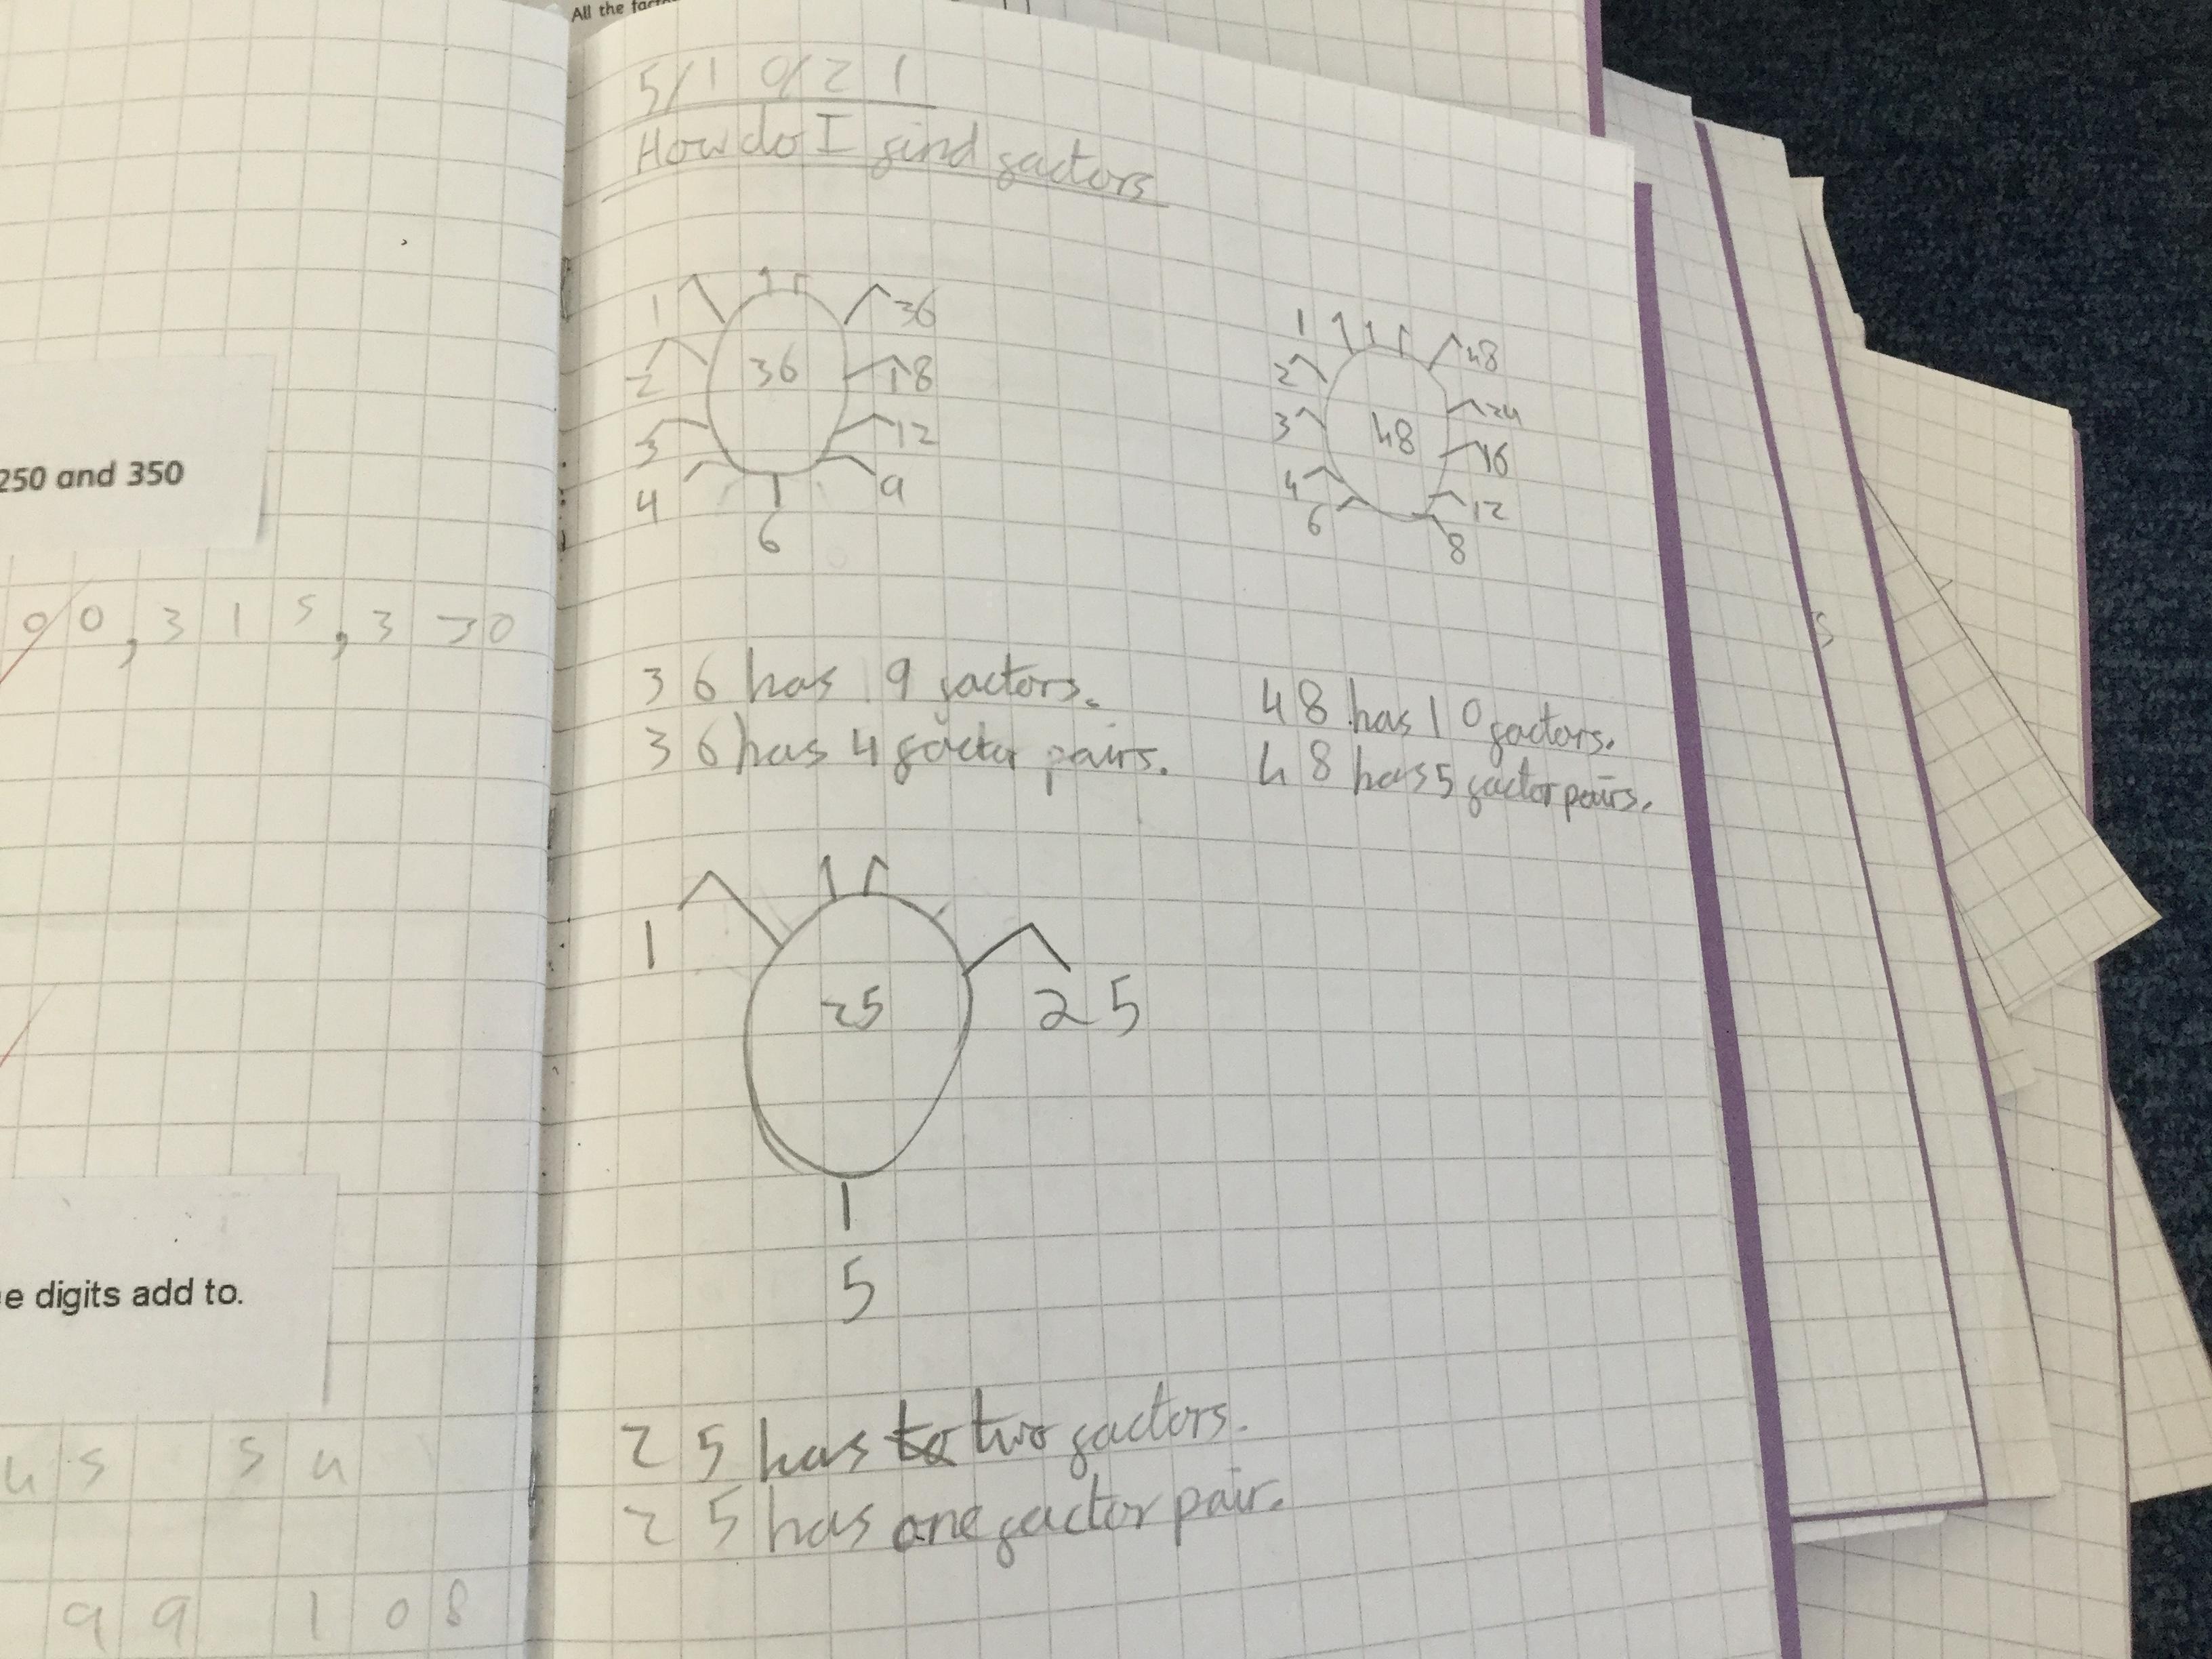 All the
250 and 350
00, 315, 330
e digits add to.
45 54
99 108
5/10/21
How do I find factors
36
1
36
2
18
3
12
4
9
6
48
1
48
2
24
3
16
4
12
6
8
36 has 9 factors.
36 has 4 factor pairs.
48 has 10 factors.
48 has 5 factor pairs.
25
1
25
5
25 has to two factors.
25 has one factor pair.